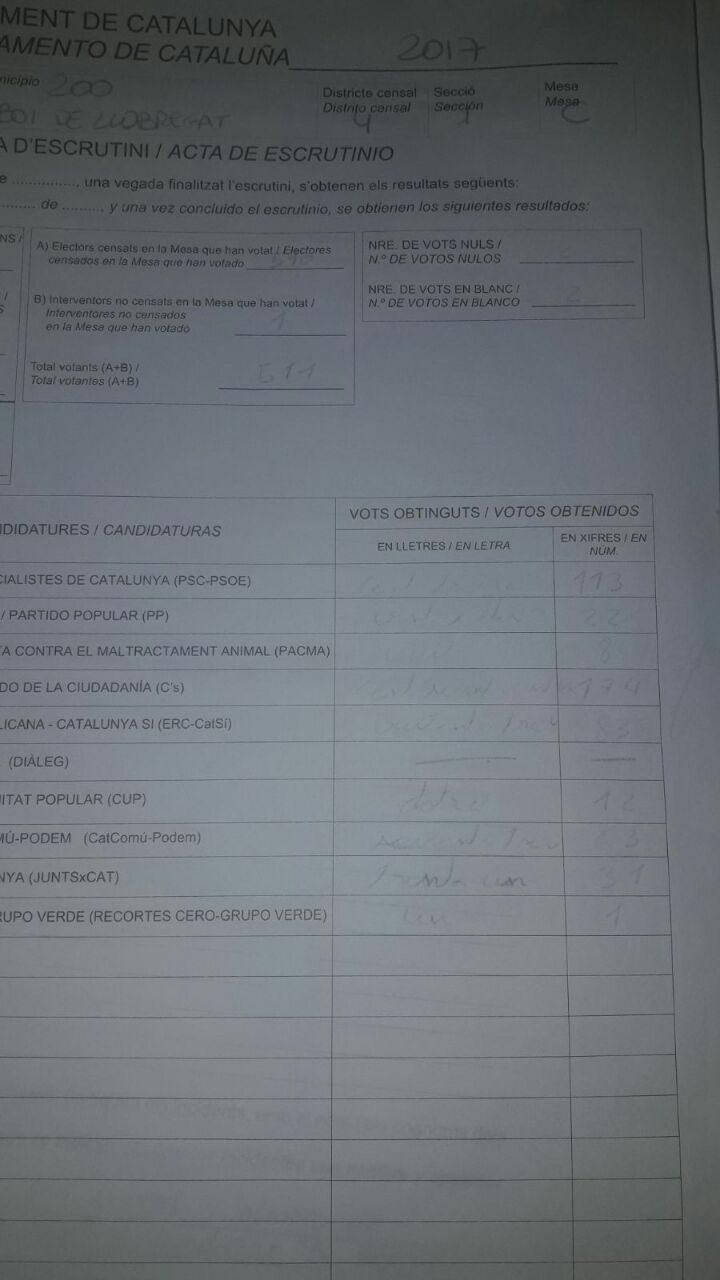 MENT DE CATALUNYA
AMENTO DE CATALUÑA 2017
nicipio 200
Districte censal Secció Mesa
Distrito censal Sección Mesa
BOI DE LLOBREGAT 4 1 C
A D'ESCRUTINI / ACTA DE ESCRUTINIO
e ................, una vegada finalitzat l'escrutini, s'obtenen els resultats següents:
......... de .........., y una vez concluido el escrutinio, se obtienen los siguientes resultados:
NS /
A) Electors censats en la Mesa que han votat / Electores
censados en la Mesa que han votado
NRE. DE VOTS NULS /
N.º DE VOTOS NULOS
B) Interventors no censats en la Mesa que han votat /
Interventores no censados
en la Mesa que han votado 1
NRE. DE VOTS EN BLANC /
N.º DE VOTOS EN BLANCO 2
Total votants (A+B) /
Total votantes (A+B) 511
DIDATURES / CANDIDATURAS
VOTS OBTINGUTS / VOTOS OBTENIDOS
EN LLETRES / EN LETRA
EN XIFRES / EN
NÚM.
CIALISTES DE CATALUNYA (PSC-PSOE) 113
/ PARTIDO POPULAR (PP) 22
TA CONTRA EL MALTRACTAMENT ANIMAL (PACMA) 8
DO DE LA CIUDADANÍA (C's) 174
LICANA - CATALUNYA SI (ERC-CatSí) 83
(DIÀLEG)
ITAT POPULAR (CUP) dotze 12
MÚ-PODEM (CatComú-Podem) 63
NYA (JUNTSxCAT) trenta un 31
RUPO VERDE (RECORTES CERO-GRUPO VERDE) un 1